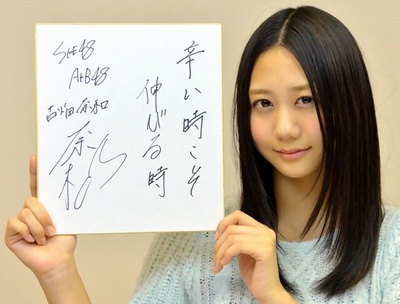 辛い時こそ
伸びる時
SKE48
AKB48
古畑奈和